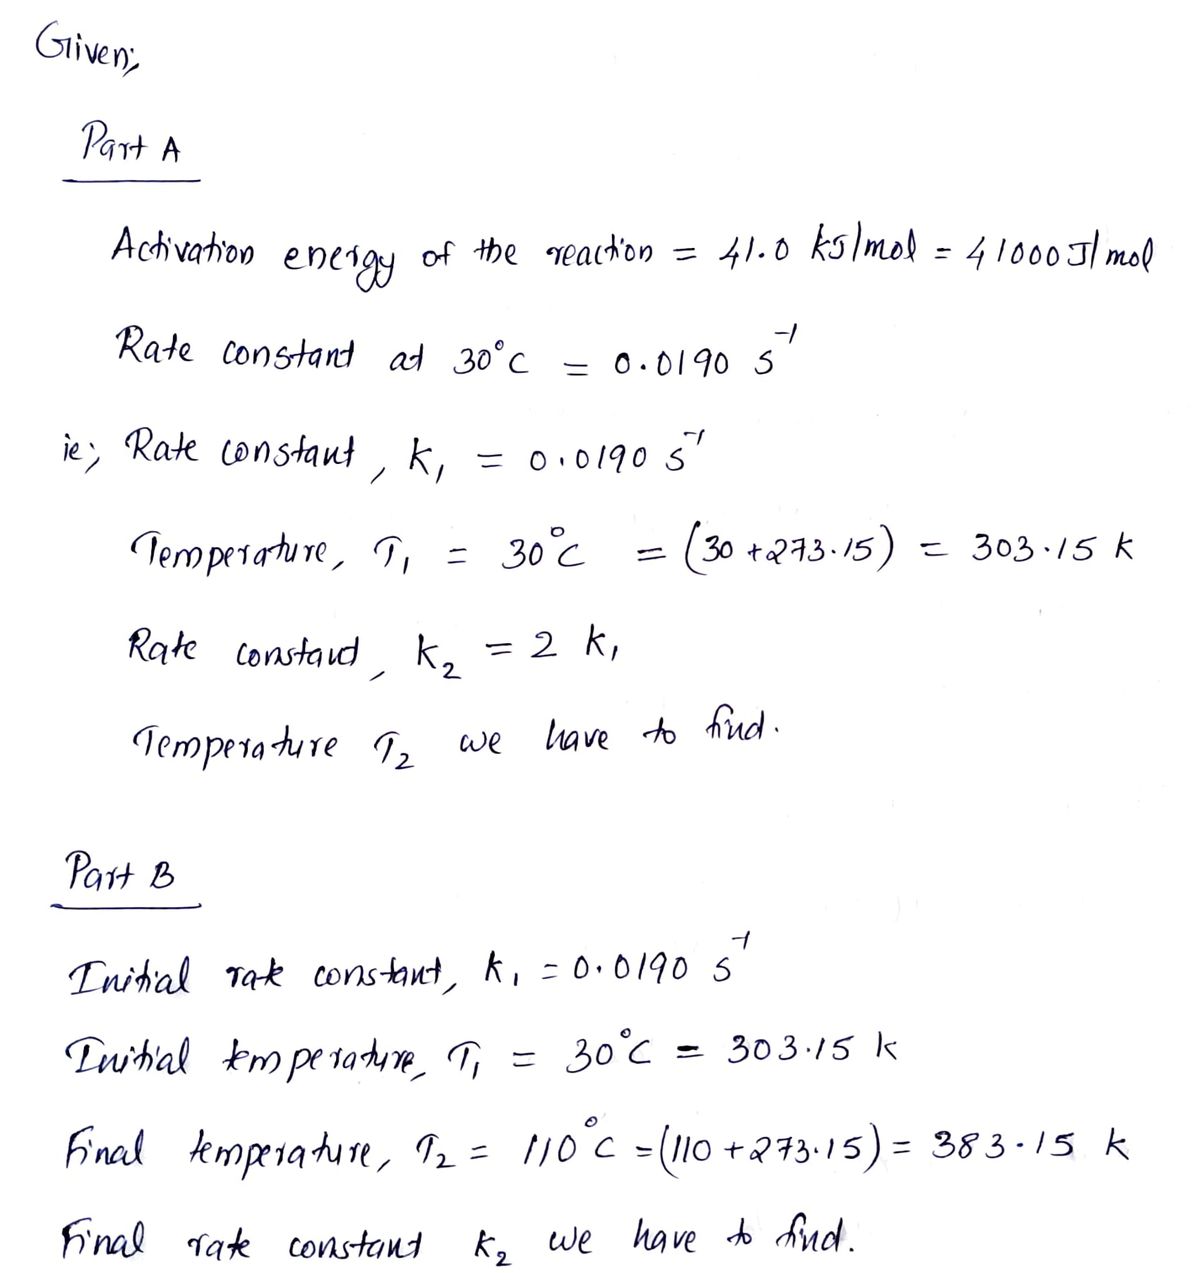 Given;
Part A
Activation energy of the reaction = 41.0 kJ/mol = 41000 J/mol
Rate constant at 30°C = 0.0190 s⁻¹
ie; Rate constant, k₁ = 0.0190 s⁻¹
Temperature, T₁ = 30°C = (30 + 273.15) = 303.15 k
Rate constant, k₂ = 2 k₁
Temperature T₂ we have to find.
Part B
Initial rate constant, k₁ = 0.0190 s⁻¹
Initial temperature, T₁ = 30°C = 303.15 k
Final temperature, T₂ = 110°C = (110 + 273.15) = 383.15 k
Final rate constant k₂ we have to find.